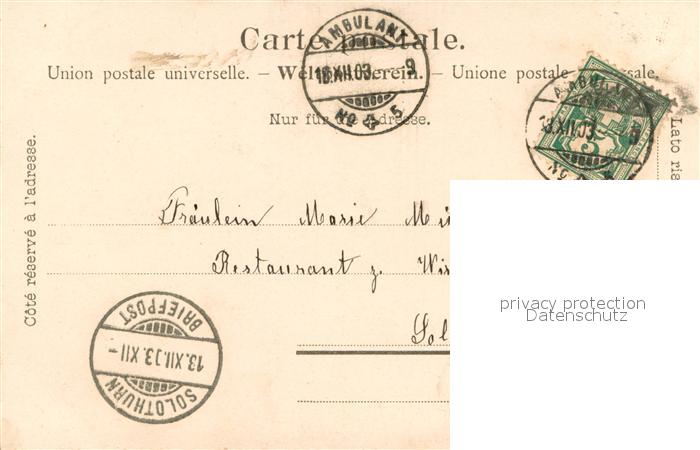 Carte postale.
Union postale universelle. – Weltpostverein. – Unione postale universale.
Nur für die Adresse.
Côté réservé à l'adresse.
Lato ris
AMBULANT
13.XII.03. –9
No 5
AMBULANT
13.XII.03.–9
No 5
Fräulein Marie Mü
Restaurant z. Wir
Sol
SOLOTHURN
13.XII.03 XII–
BRIEFPOST
privacy protection
Datenschutz